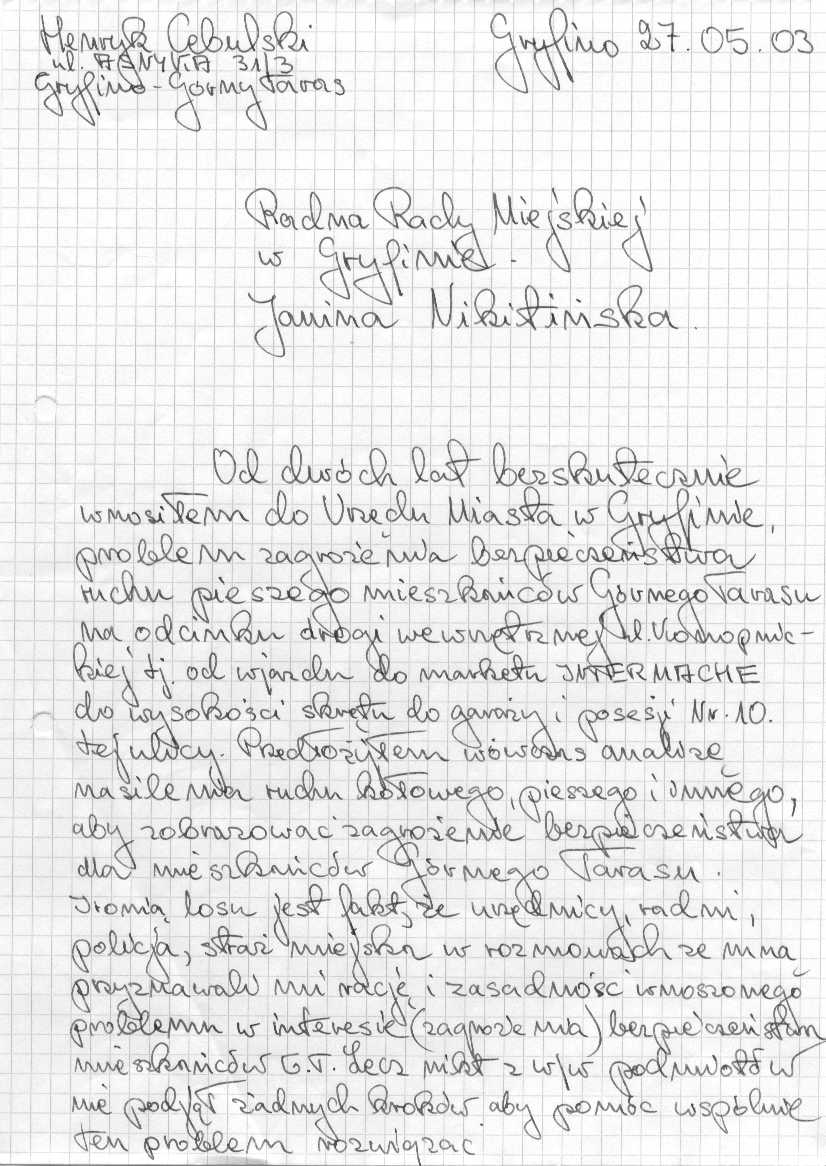 Henryk Cebulski
ul. ASNYKA 31/3
Gryfino - Górny Taras
Gryfino 27.05.03
Radna Rady Miejskiej
w Gryfinie.
Janina Nikitińska.
Od dwóch lat bezskutecznie
wnosiłem do Urzędu Miasta w Gryfinie,
problem zagrożenia bezpieczeństwa
ruchu pieszego mieszkańców Górnego Tarasu
na odcinku drogi wewnętrznej ul. Konopnic-
kiej tj. od wjazdu do marketu INTERMACHE
do wysokości skrętu do garaży i posesji Nr. 10.
tej ulicy. Przedłożyłem wówczas analizę
nasilenia ruchu kołowego, pieszego i innego,
aby zobrazować zagrożenie bezpieczeństwa
dla mieszkańców Górnego Tarasu.
Ironią losu jest fakt, że urzędnicy, radni,
policja, straż miejska w rozmowach ze mną
przyznawali mi rację i zasadność wnoszonego
problemu w interesie (zagrożenia) bezpieczeństwa
mieszkańców G.T. Lecz nikt z w/w podmiotów
nie podjął żadnych kroków aby pomóc wspólnie
ten problem rozwiązać